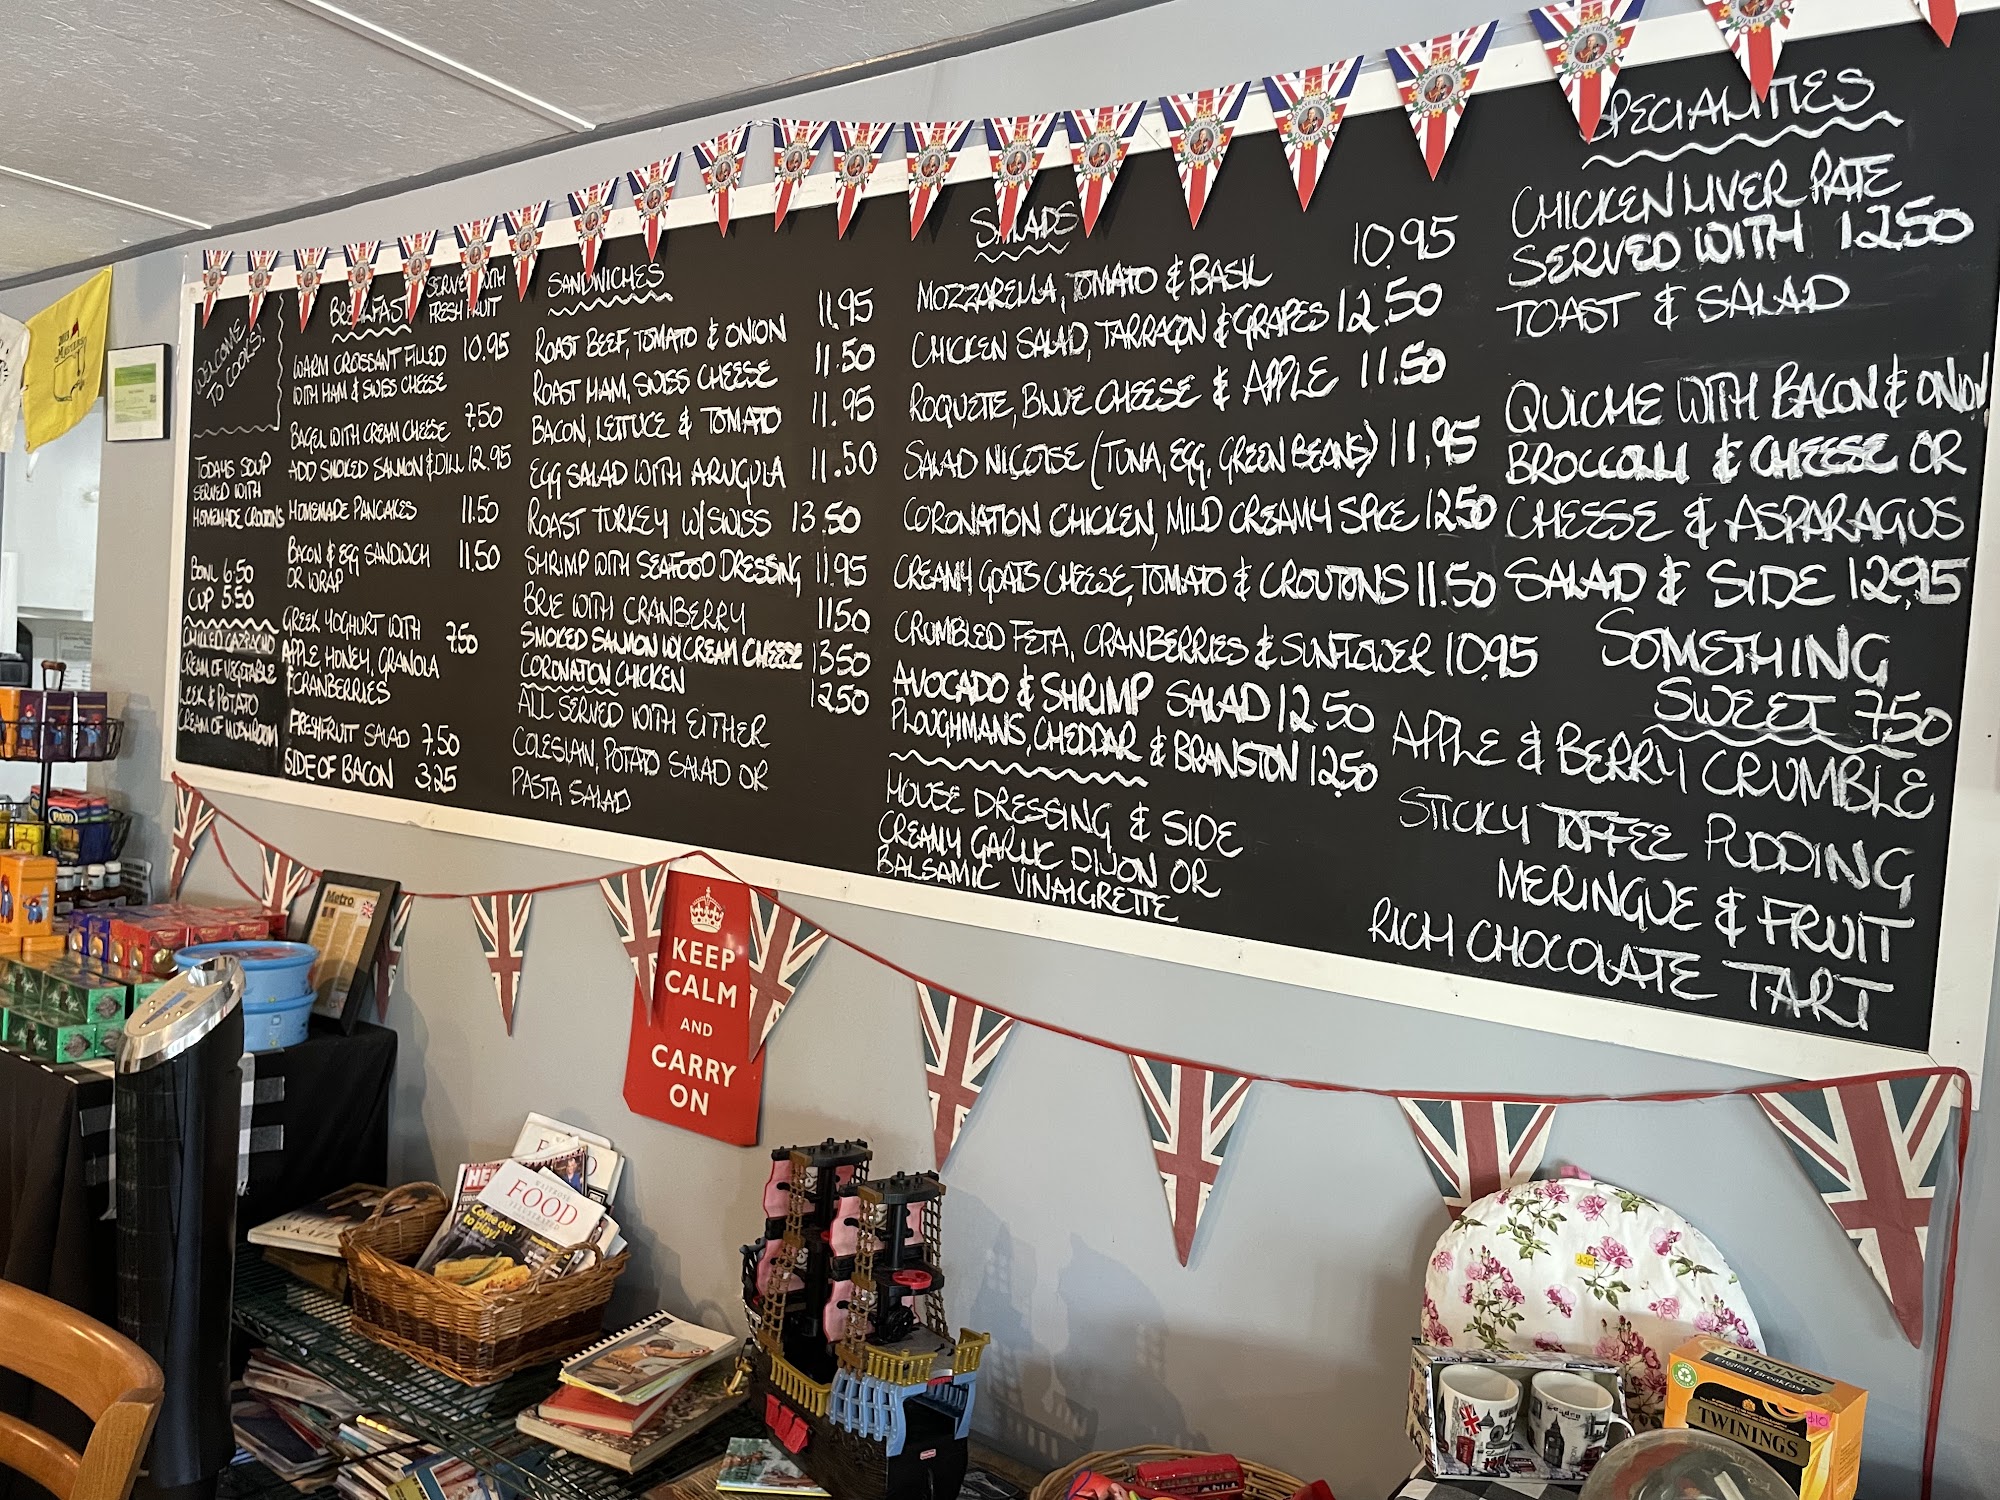 WELCOME
TO COOKS!
TODAYS SOUP
SERVED WITH
HOMEMADE CROUTONS
BOWL 6.50
CUP 5.50
CHILLED GAZPACHO
CREAM OF VEGETABLE
LEEK & POTATO
CREAM OF MUSHROOM
BREAKFAST SERVED WITH
FRESH FRUIT
WARM CROISSANT FILLED 10.95
WITH HAM & SWISS CHEESE
BAGEL WITH CREAM CHEESE 7.50
ADD SMOKED SALMON & DILL 12.95
HOMEMADE PANCAKES 11.50
BACON & EGG SANDWICH 11.50
OR WRAP
GREEK YOGHURT WITH 7.50
APPLE, HONEY, GRANOLA
& CRANBERRIES
FRESH FRUIT SALAD 7.50
SIDE OF BACON 3.25
SANDWICHES
ROAST BEEF, TOMATO & ONION 11.95
ROAST HAM, SWISS CHEESE 11.50
BACON, LETTUCE & TOMATO 11.95
EGG SALAD WITH ARUGULA 11.50
ROAST TURKEY W/ SWISS 13.50
SHRIMP WITH SEAFOOD DRESSING 11.95
BRIE WITH CRANBERRY 11.50
SMOKED SALMON W/ CREAM CHEESE 13.50
CORONATION CHICKEN 12.50
ALL SERVED WITH EITHER
COLESLAW, POTATO SALAD OR
PASTA SALAD
SALADS
MOZZARELLA, TOMATO & BASIL 10.95
CHICKEN SALAD, TARRAGON & GRAPES 12.50
ROQUETTE, BLUE CHEESE & APPLE 11.50
SALAD NIÇOISE (TUNA, EGG, GREEN BEANS) 11.95
CORONATION CHICKEN, MILD CREAMY SPICE 12.50
CREAMY GOATS CHEESE, TOMATO & CROUTONS 11.50
CRUMBLED FETA, CRANBERRIES & SUNFLOWER 10.95
AVOCADO & SHRIMP SALAD 12.50
PLOUGHMANS, CHEDDAR & BRANSTON 12.50
HOUSE DRESSING & SIDE
CREAMY GARLIC DIJON OR
BALSAMIC VINAIGRETTE
SPECIALITIES
CHICKEN LIVER PATE
SERVED WITH 12.50
TOAST & SALAD
QUICHE WITH BACON & ONION
BROCCOLI & CHEESE OR
CHEESE & ASPARAGUS
SALAD & SIDE 12.95
SOMETHING
SWEET 7.50
APPLE & BERRY CRUMBLE
STICKY TOFFEE PUDDING
MERINGUE & FRUIT
RICH CHOCOLATE TART
KEEP
CALM
AND
CARRY
ON
Metro
MASTERS
WAITROSE
FOOD
ILLUSTRATED
Come out
to play!
TWININGS
English Breakfast
TWININGS